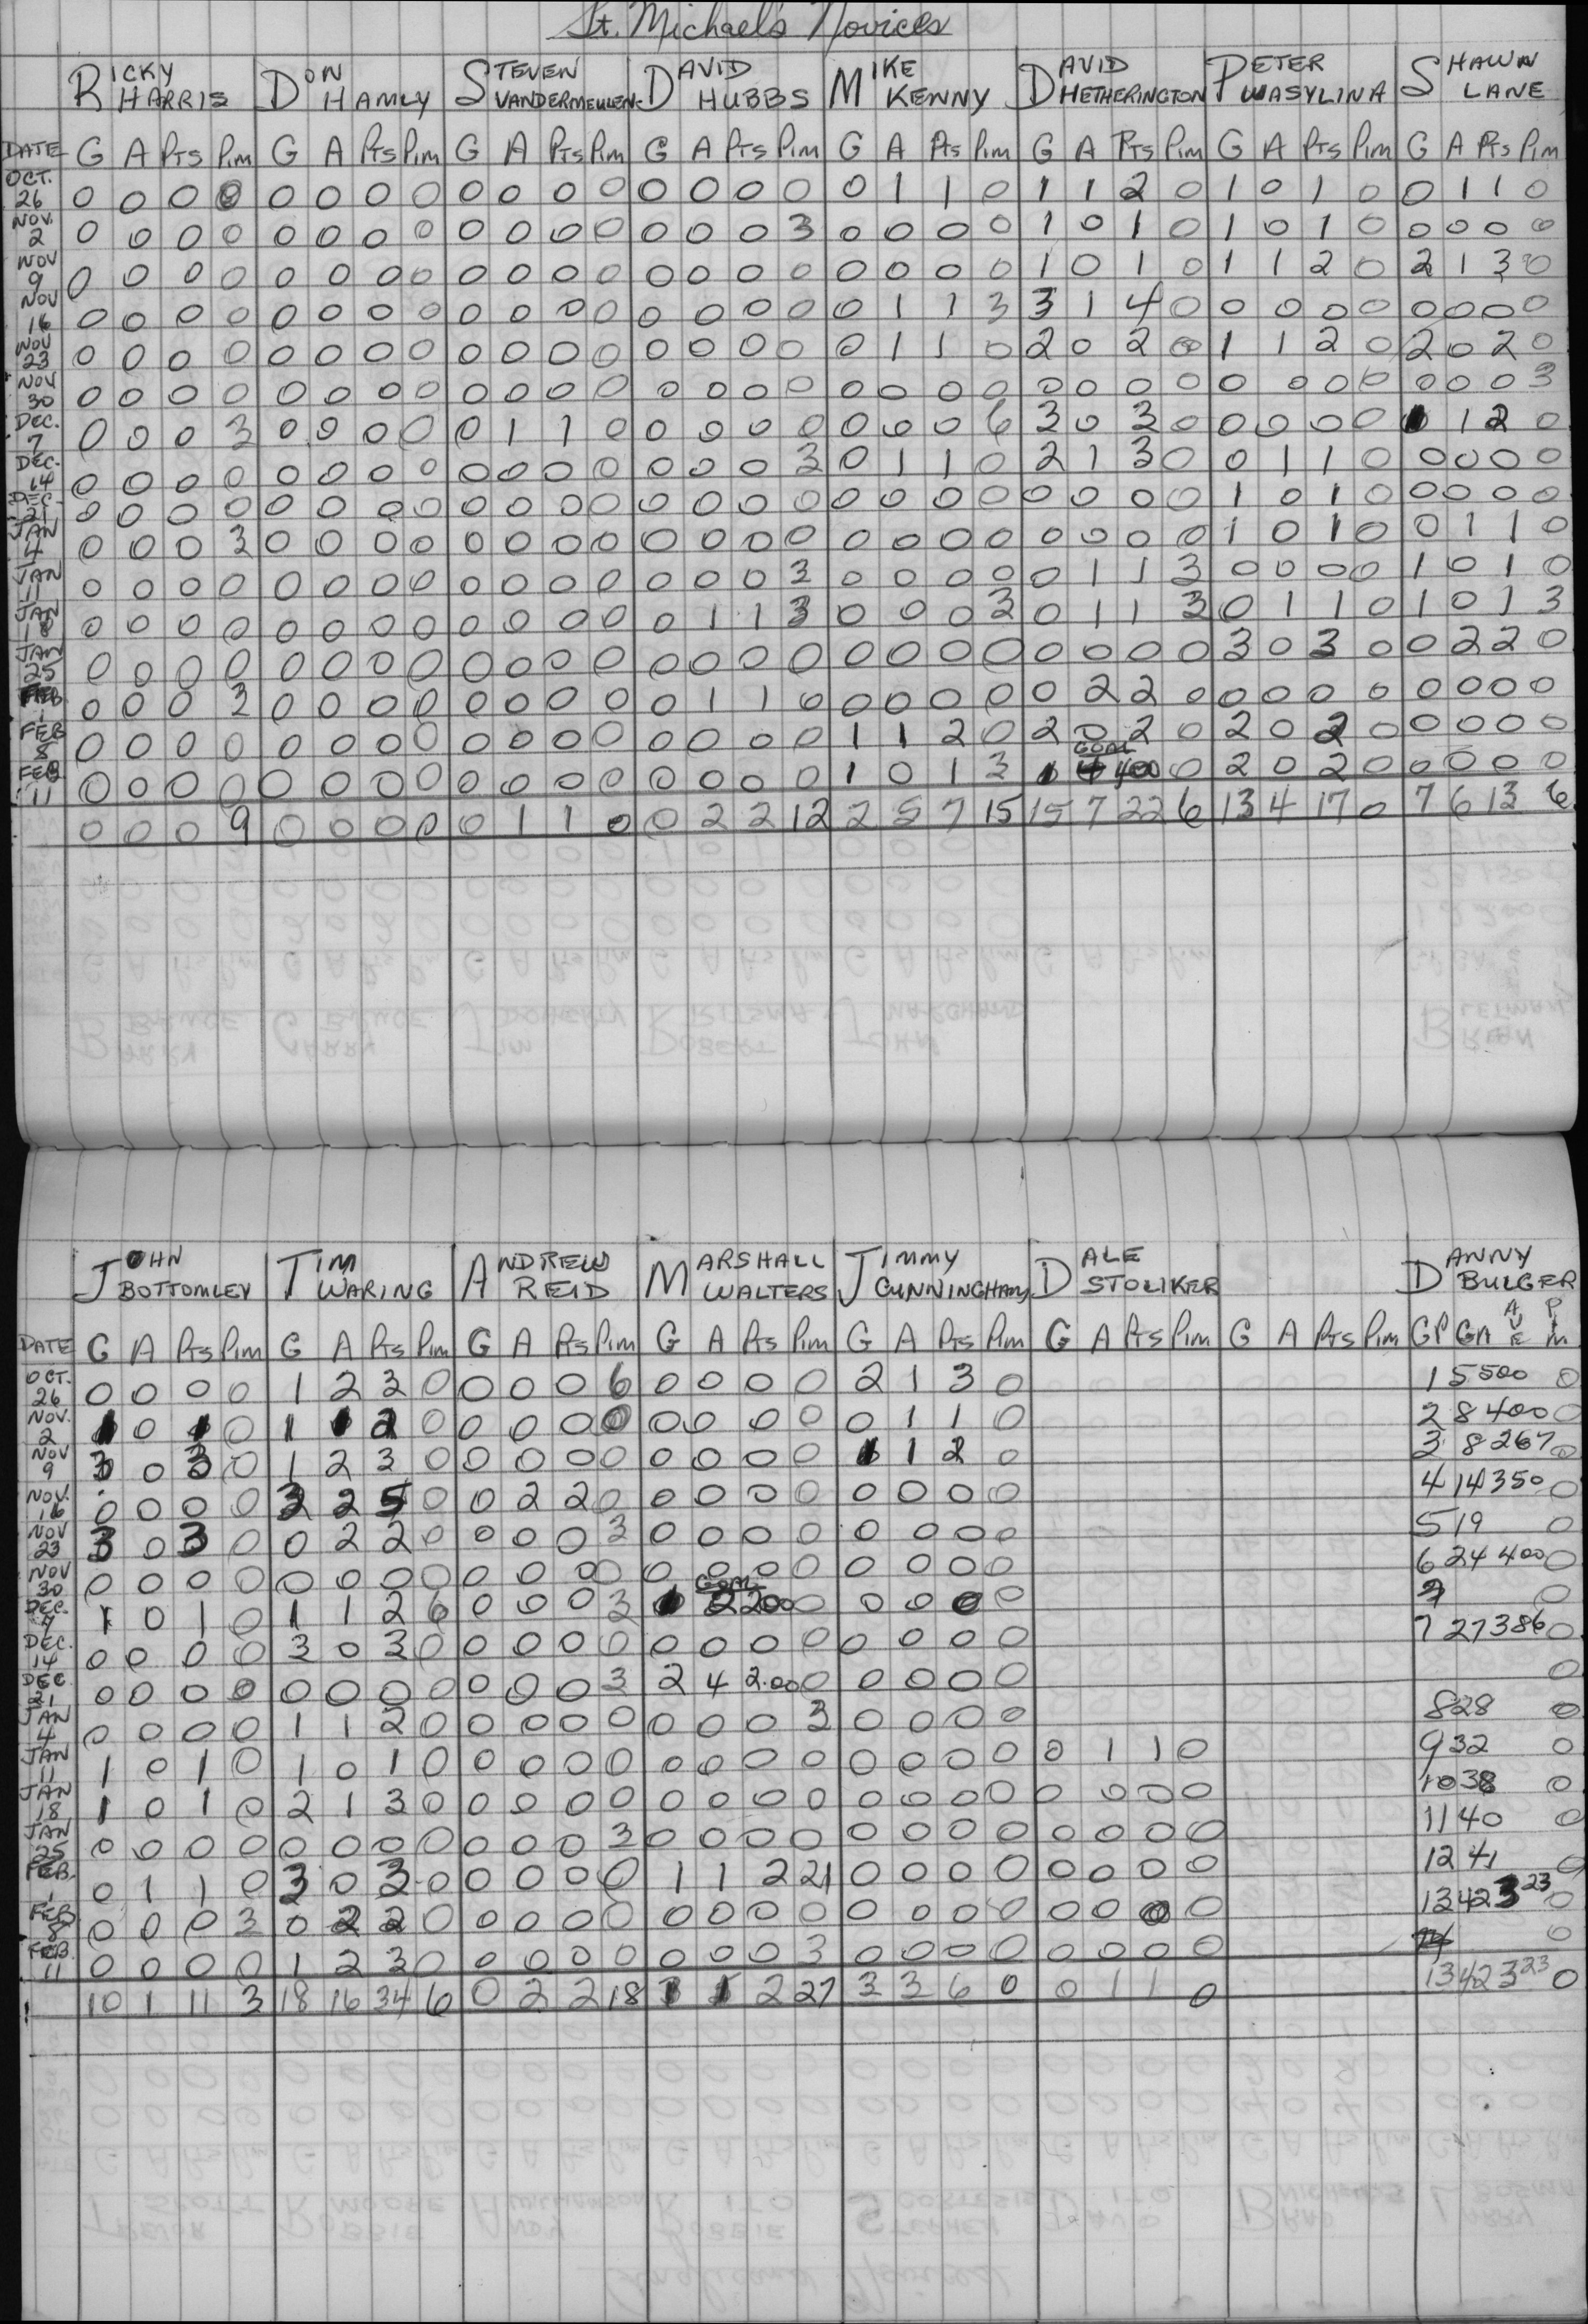 St. Michael's Novices
RICKY HARRIS DON HAMLY STEVEN VANDERMEULEN DAVID HUBBS MIKE KENNY DAVID HETHERINGTON PETER WASYLINA SHAWN LANE
DATE G A Pts Pim G A Pts Pim G A Pts Pim G A Pts Pim G A Pts Pim G A Pts Pim G A Pts Pim G A Pts Pim
OCT. 26 0 0 0 0 0 0 0 0 0 0 0 0 0 0 0 0 0 1 1 0 1 1 2 0 1 0 1 0 0 1 1 0
NOV. 2 0 0 0 0 0 0 0 0 0 0 0 0 0 0 0 3 0 0 0 0 1 0 1 0 1 0 1 0 0 0 0 0
NOV 9 0 0 0 0 0 0 0 0 0 0 0 0 0 0 0 0 0 0 0 0 1 0 1 0 1 1 2 0 2 1 3 0
NOV 16 0 0 0 0 0 0 0 0 0 0 0 0 0 0 0 0 0 1 1 3 3 1 4 0 0 0 0 0 0 0 0 0
NOV 23 0 0 0 0 0 0 0 0 0 0 0 0 0 0 0 0 0 1 1 0 2 0 2 0 1 1 2 0 2 0 2 0
NOV 30 0 0 0 0 0 0 0 0 0 0 0 0 0 0 0 0 0 0 0 0 0 0 0 0 0 0 0 0 0 0 0 3
DEC. 7 0 0 0 3 0 0 0 0 0 1 1 0 0 0 0 0 0 0 0 6 3 0 3 0 0 0 0 0 1 1 2 0
DEC. 14 0 0 0 0 0 0 0 0 0 0 0 0 0 0 0 3 0 1 1 0 2 1 3 0 0 1 1 0 0 0 0 0
DEC. 21 0 0 0 0 0 0 0 0 0 0 0 0 0 0 0 0 0 0 0 0 0 0 0 0 1 0 1 0 0 0 0 0
JAN 4 0 0 0 3 0 0 0 0 0 0 0 0 0 0 0 0 0 0 0 0 0 0 0 0 1 0 1 0 0 1 1 0
JAN 11 0 0 0 0 0 0 0 0 0 0 0 0 0 0 0 3 0 0 0 0 0 1 1 3 0 0 0 0 1 0 1 0
JAN 18 0 0 0 0 0 0 0 0 0 0 0 0 0 1 1 3 0 0 0 3 0 1 1 3 0 1 1 0 1 0 1 3
JAN 25 0 0 0 0 0 0 0 0 0 0 0 0 0 0 0 0 0 0 0 0 0 0 0 0 3 0 3 0 0 2 2 0
FEB 1 0 0 0 3 0 0 0 0 0 0 0 0 0 1 1 0 0 0 0 0 0 2 2 0 0 0 0 0 0 0 0 0
FEB 8 0 0 0 0 0 0 0 0 0 0 0 0 0 0 0 0 1 1 2 0 2 0 2 0 2 0 2 0 0 0 0 0
FEB 11 0 0 0 0 0 0 0 0 0 0 0 0 0 0 0 0 1 0 1 3 1 GOAL 4 400 0 2 0 2 0 0 0 0 0
0 0 0 9 0 0 0 0 0 1 1 0 0 2 2 12 2 5 7 15 15 7 22 6 13 4 17 0 7 6 13 6
JOHN BOTTOMLEY TIM WARING ANDREW REID MARSHALL WALTERS JIMMY CUNNINGHAM DALE STOLIKER DANNY BULGER
DATE G A Pts Pim G A Pts Pim G A Pts Pim G A Pts Pim G A Pts Pim G A Pts Pim G A Pts Pim GP GA AVE PIM
OCT. 26 0 0 0 0 1 2 3 0 0 0 0 6 0 0 0 0 2 1 3 0 1 5 500 0
NOV. 2 1 0 1 0 1 1 2 0 0 0 0 0 0 0 0 0 0 1 1 0 2 8 400 0
NOV 9 3 0 3 0 1 2 3 0 0 0 0 0 0 0 0 0 1 1 2 0 3 8 267 0
NOV. 16 0 0 0 0 3 2 5 0 0 2 2 0 0 0 0 0 0 0 0 0 4 14 350 0
NOV 23 3 0 3 0 0 2 2 0 0 0 0 3 0 0 0 0 0 0 0 0 5 19 0
NOV 30 0 0 0 0 0 0 0 0 0 0 0 0 0 0 0 0 0 0 0 0 6 24 400 0
DEC. 7 1 0 1 0 1 1 2 6 0 0 0 3 1 GOAL 2 200 0 0 0 0 0 7 0
DEC. 14 0 0 0 0 3 0 3 0 0 0 0 0 0 0 0 0 0 0 0 0 7 27 386 0
DEC 21 0 0 0 0 0 0 0 0 0 0 0 3 2 4 2.00 0 0 0 0 0 0
JAN 4 0 0 0 0 1 1 2 0 0 0 0 0 0 0 0 3 0 0 0 0 8 28 0
JAN 11 1 0 1 0 1 0 1 0 0 0 0 0 0 0 0 0 0 0 0 0 0 1 1 0 9 32 0
JAN 18 1 0 1 0 2 1 3 0 0 0 0 0 0 0 0 0 0 0 0 0 0 0 0 0 10 38 0
JAN 25 0 0 0 0 0 0 0 0 0 0 0 3 0 0 0 0 0 0 0 0 0 0 0 0 11 40 0
FEB. 1 0 1 1 0 3 0 3 0 0 0 0 0 1 1 2 21 0 0 0 0 0 0 0 0 12 41 0
FEB 8 0 0 0 3 0 2 2 0 0 0 0 0 0 0 0 0 0 0 0 0 0 0 0 0 13 42 3 23 0
FEB. 11 0 0 0 0 1 2 3 0 0 0 0 0 0 0 0 3 0 0 0 0 0 0 0 0 14 0
10 1 11 3 18 16 34 6 0 2 2 18 1 1 2 27 3 3 6 0 0 1 1 0 13 42 3 23 0